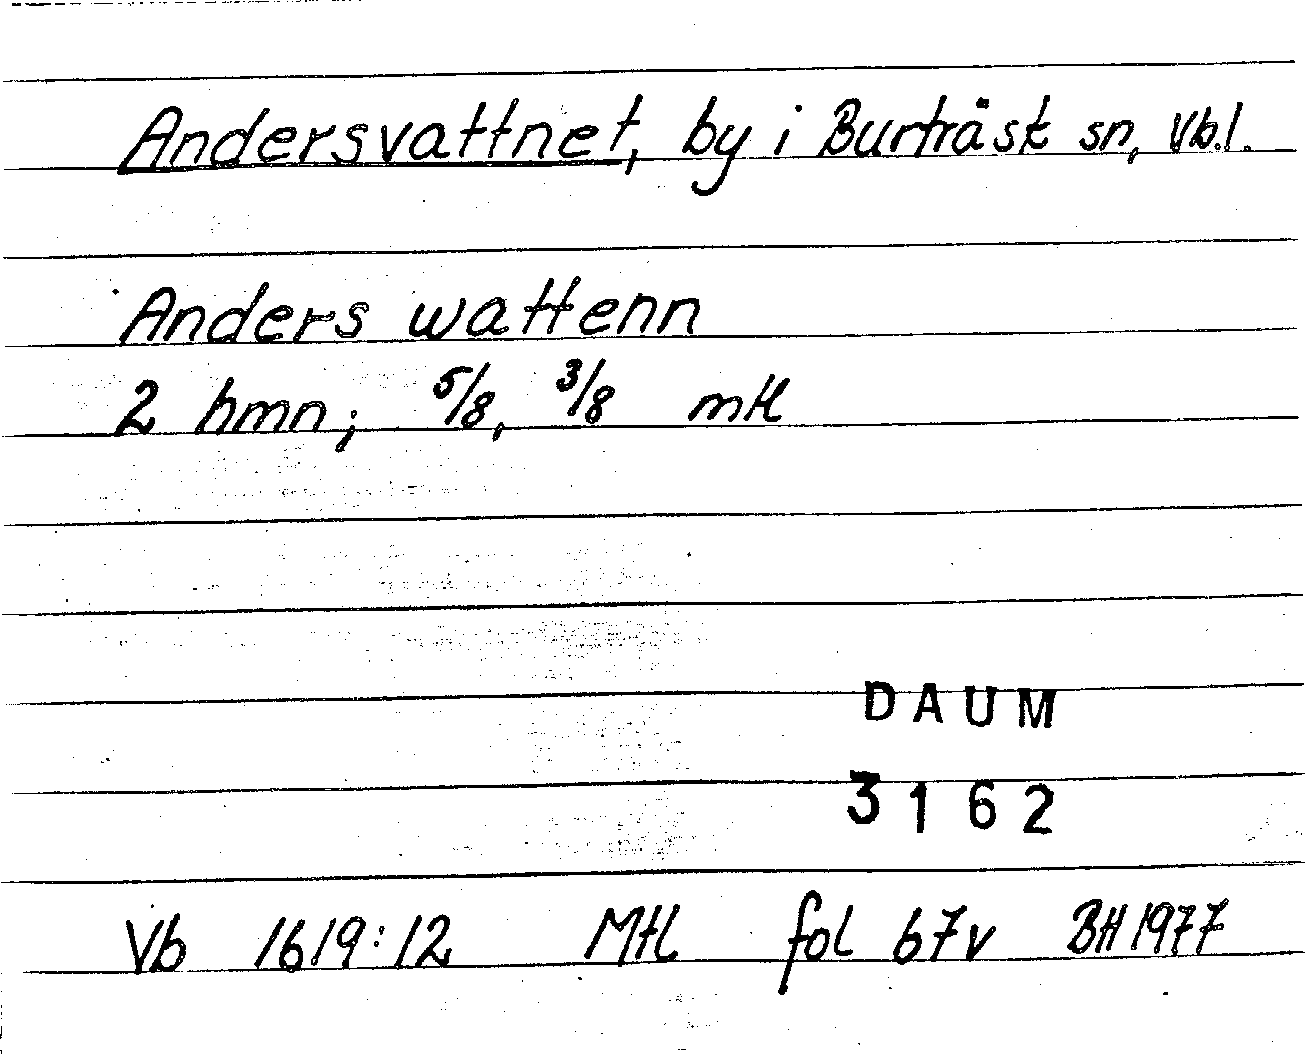 Andersvattnet, by i Burträsk sn, Vb.l.
Anders wattenn
2 hmn; 5/8, 3/8 mtl
DAUM
3162
Vb 1619:12 Mtl fol 67v BH 1977